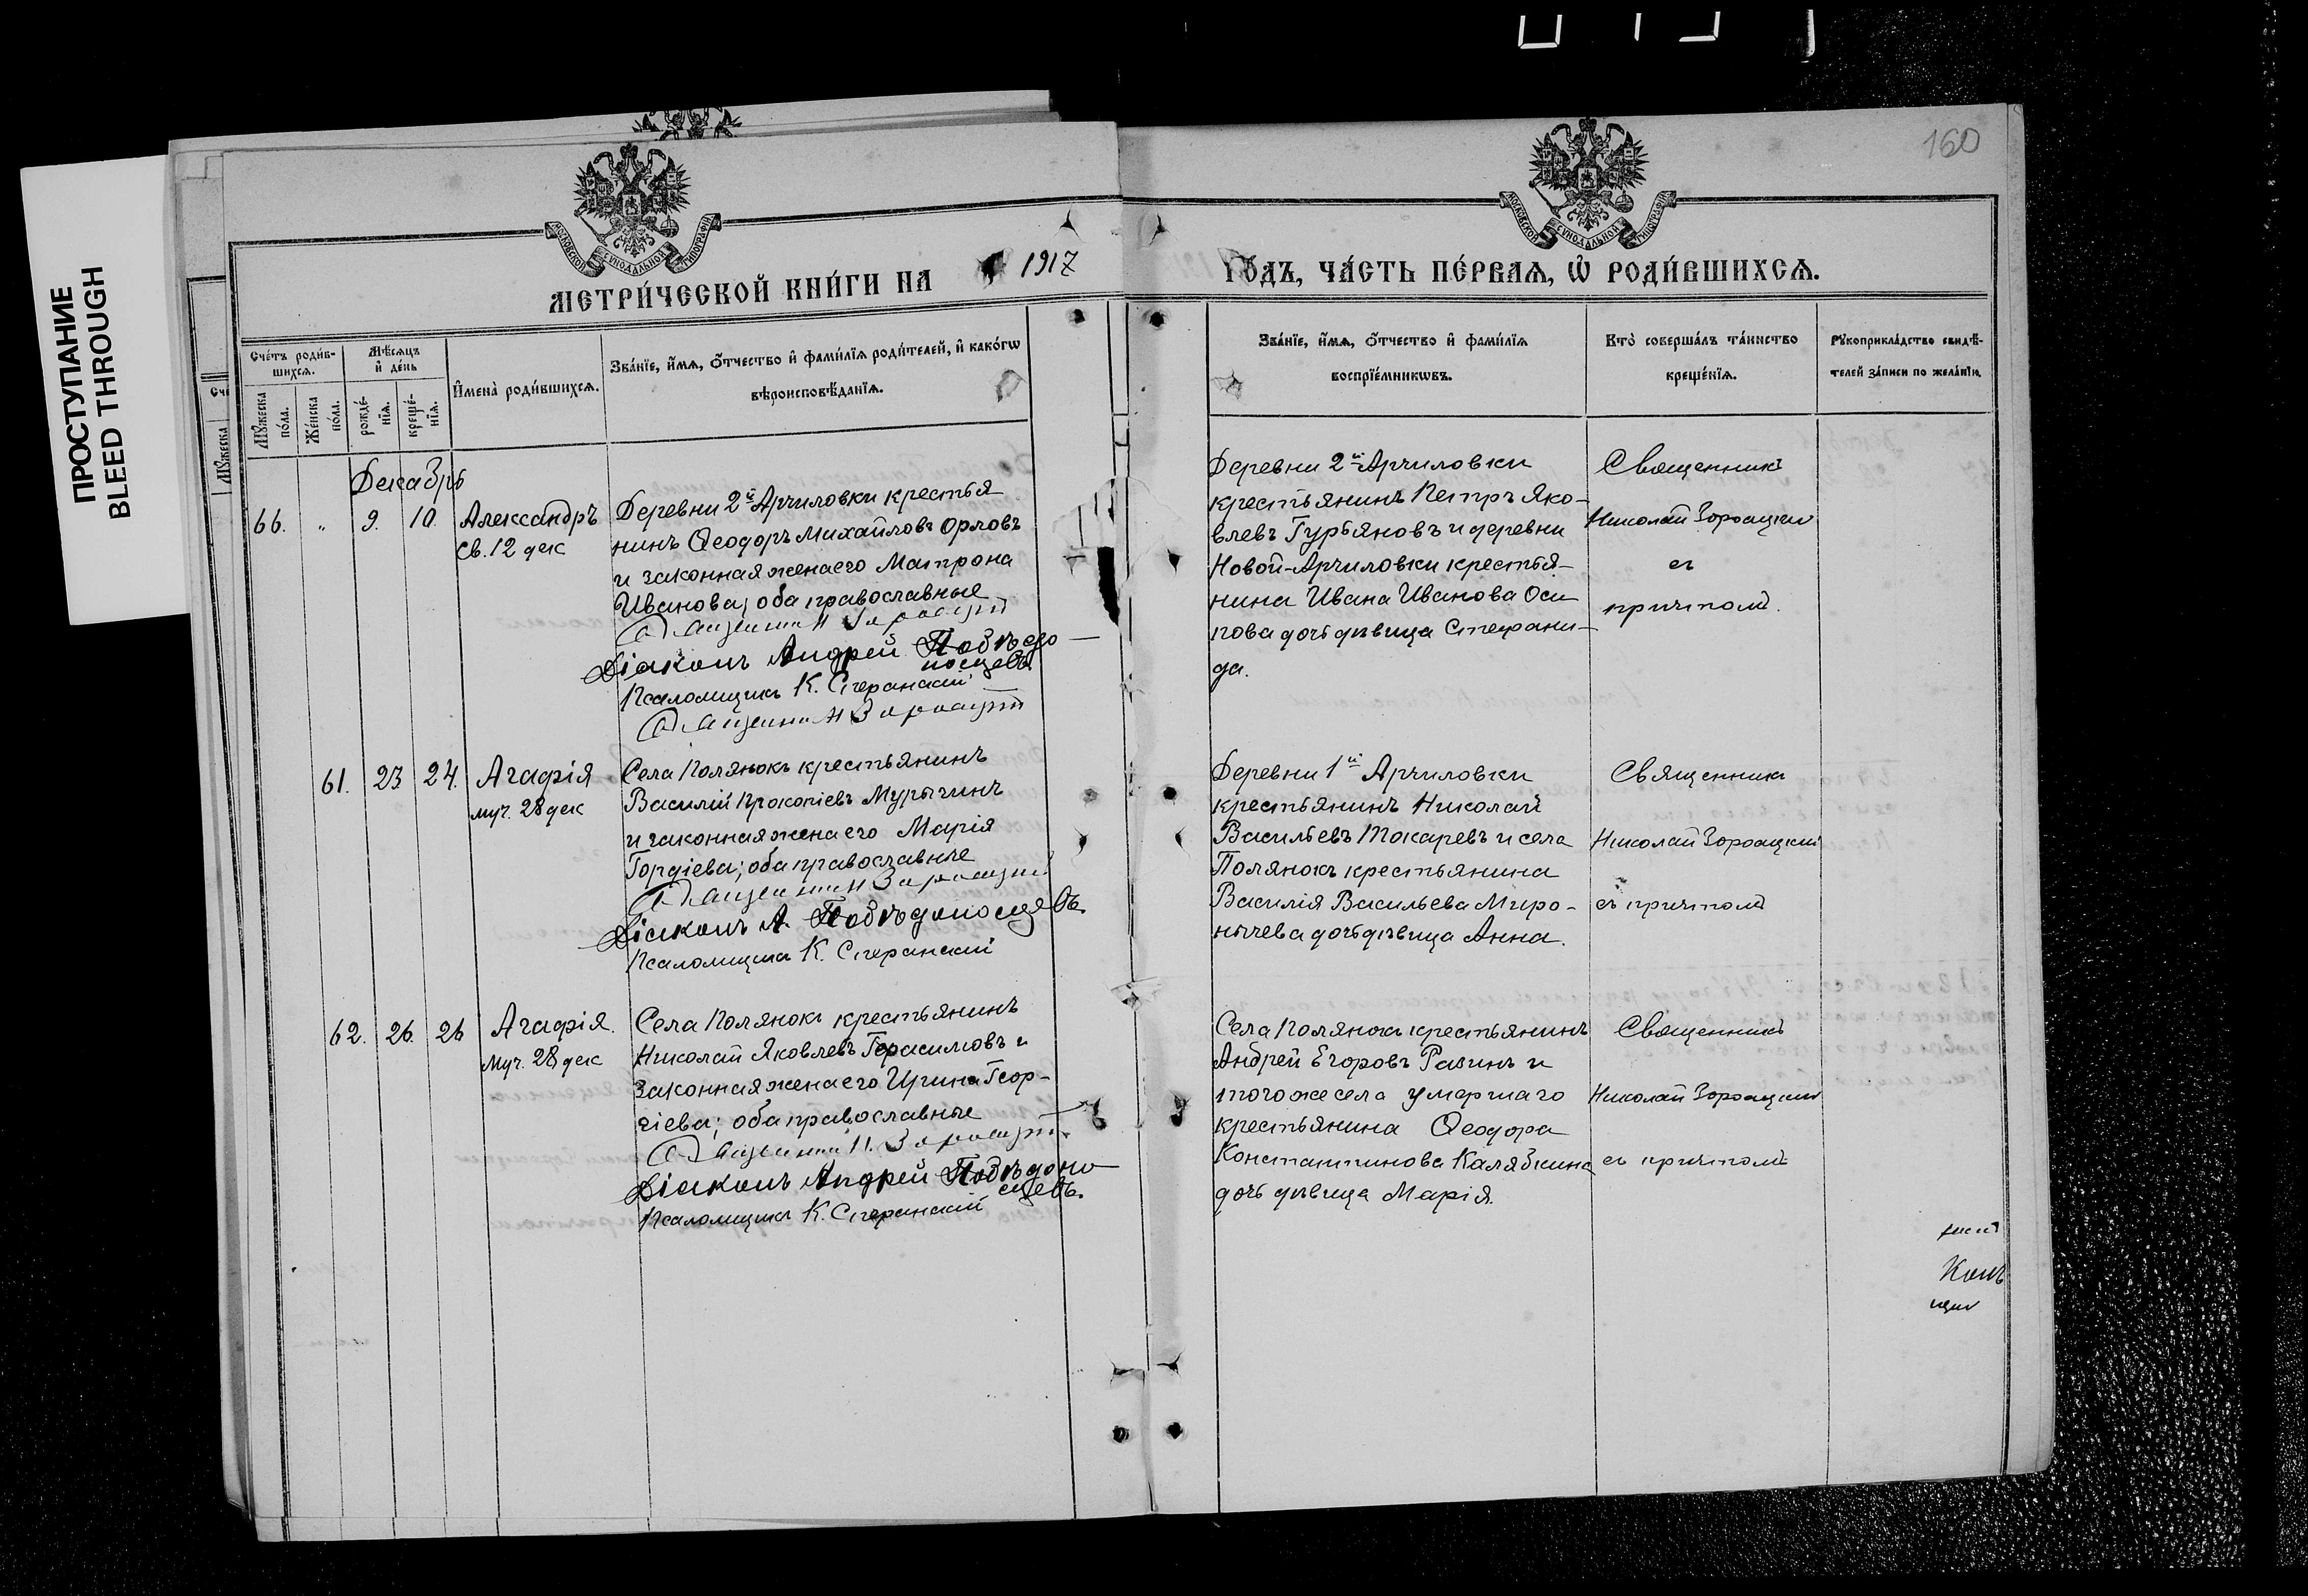 160
ПРОСТУПАНИЕ
BLEED THROUGH
МОСКОВСКОЙ СУНОДАЛЬНОЙ ТИПОГРАФІИ
МОСКОВСКОЙ СУНОДАЛЬНОЙ ТИПОГРАФІИ
МЕТРИ́ЧЕСКОЙ КНИ́ГИ НА 1917
ГО́ДЪ, ЧА́СТЬ ПЕ́РВАЯ, Ѡ҆ РОДИ́ВШИХСЯ.
Сче́тъ роди́в-
шихся.
Мꙋ́жеска по́ла.
Же́нска по́ла.
Мѣ́сяцъ и҆ де́нь
рожде́-нїя.
креще́-нїя.
И҆мена̀ роди́вшихся.
Зва́нїе, и҆́мя, ѻ҆́тчество и҆ фами́лїя роди́телей, и҆ како́гѡ
вѣроисповѣ́данїя.
Зва́нїе, и҆́мя, ѻ҆́тчество и҆ фами́лїя
воспрїе́мникѡвъ.
Кто̀ соверша́лъ та́инство
креще́нїя.
Рꙋкоприкла́дство свидѣ́-
телей за́писи по жела́нїю.
Декабрь
66. „ 9. 10. Александръ
св. 12 дек
Деревни 2й Арчиловки крестья
нинъ Ѳеодоръ Михайловъ Орловъ
и законная жена его Матрона
Иванова; оба православные
Священник Н.
Діаконъ Андрей Побѣдо
носцевъ.
Псаломщикъ К. Сперанскій
Священник Н.
Деревни 2й Арчиловки
крестьянинъ Петръ Яко-
влевъ Гурьяновъ и деревни
Новой-Арчиловки крестья-
нина Ивана Иванова Оси
пова дочь дѣвица Стефани-
да.
Священникъ
Николай
съ
причтомъ.
61. 23 24. Агафія
муч. 28 дек
Села Полянокъ крестьянинъ
Василій Прокопіевъ Мурычинъ
и законная жена его Марія
Гордіева; оба православные
Священник Н.
Діаконъ А. Побѣдоносцевъ.
Псаломщикъ К. Сперанскій
Деревни 1й Арчиловки
крестьянинъ Николай
Васильевъ Токаревъ и села
Полянокъ крестьянина
Василія Васильева Миро-
нычева дочь дѣвица Анна.
Священникъ
Николай
съ причтомъ
62. 26. 26 Агафія.
Муч. 28 дек
Села Полянокъ крестьянинъ
Николай Яковлевъ Герасимовъ и
законная жена его Ирина Геор-
гіева; оба православные
Священник Н.
Діаконъ Андрей Побѣдоно
сцевъ.
Псаломщикъ К. Сперанскій
Села Полянокъ крестьянинъ
Андрей Егоровъ Разинъ и
того же села умершаго
крестьянина Ѳеодора
Константинова Калябкина
дочь дѣвица Марія.
Священникъ
Николай
съ причтомъ